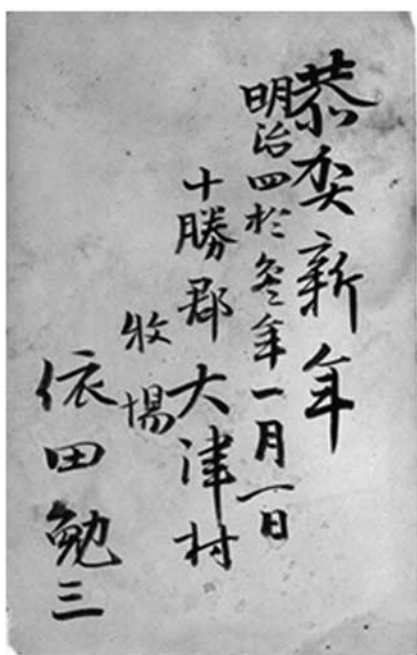 恭賀新年
明治四拾参年一月一日
十勝郡大津村
牧場
依田勉三